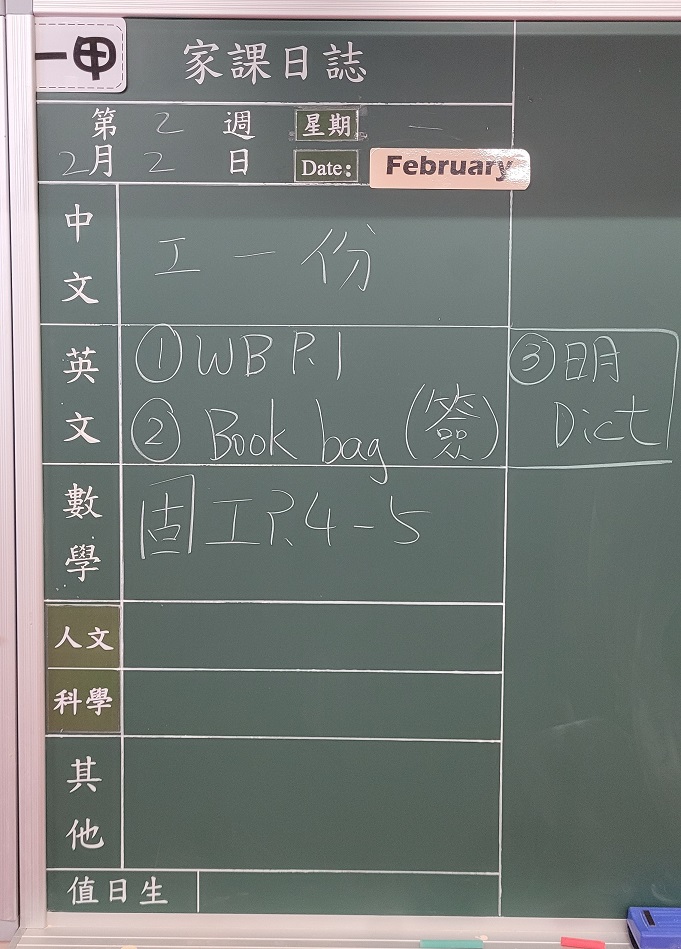 一甲
家課日誌
第 2 週 星期 一
2月 2 日 Date: February
中文
工一份
英文
①WB P.1
②Book bag (簽)
③明
Dict
數學
固工P.4-5
人文
科學
其他
值日生